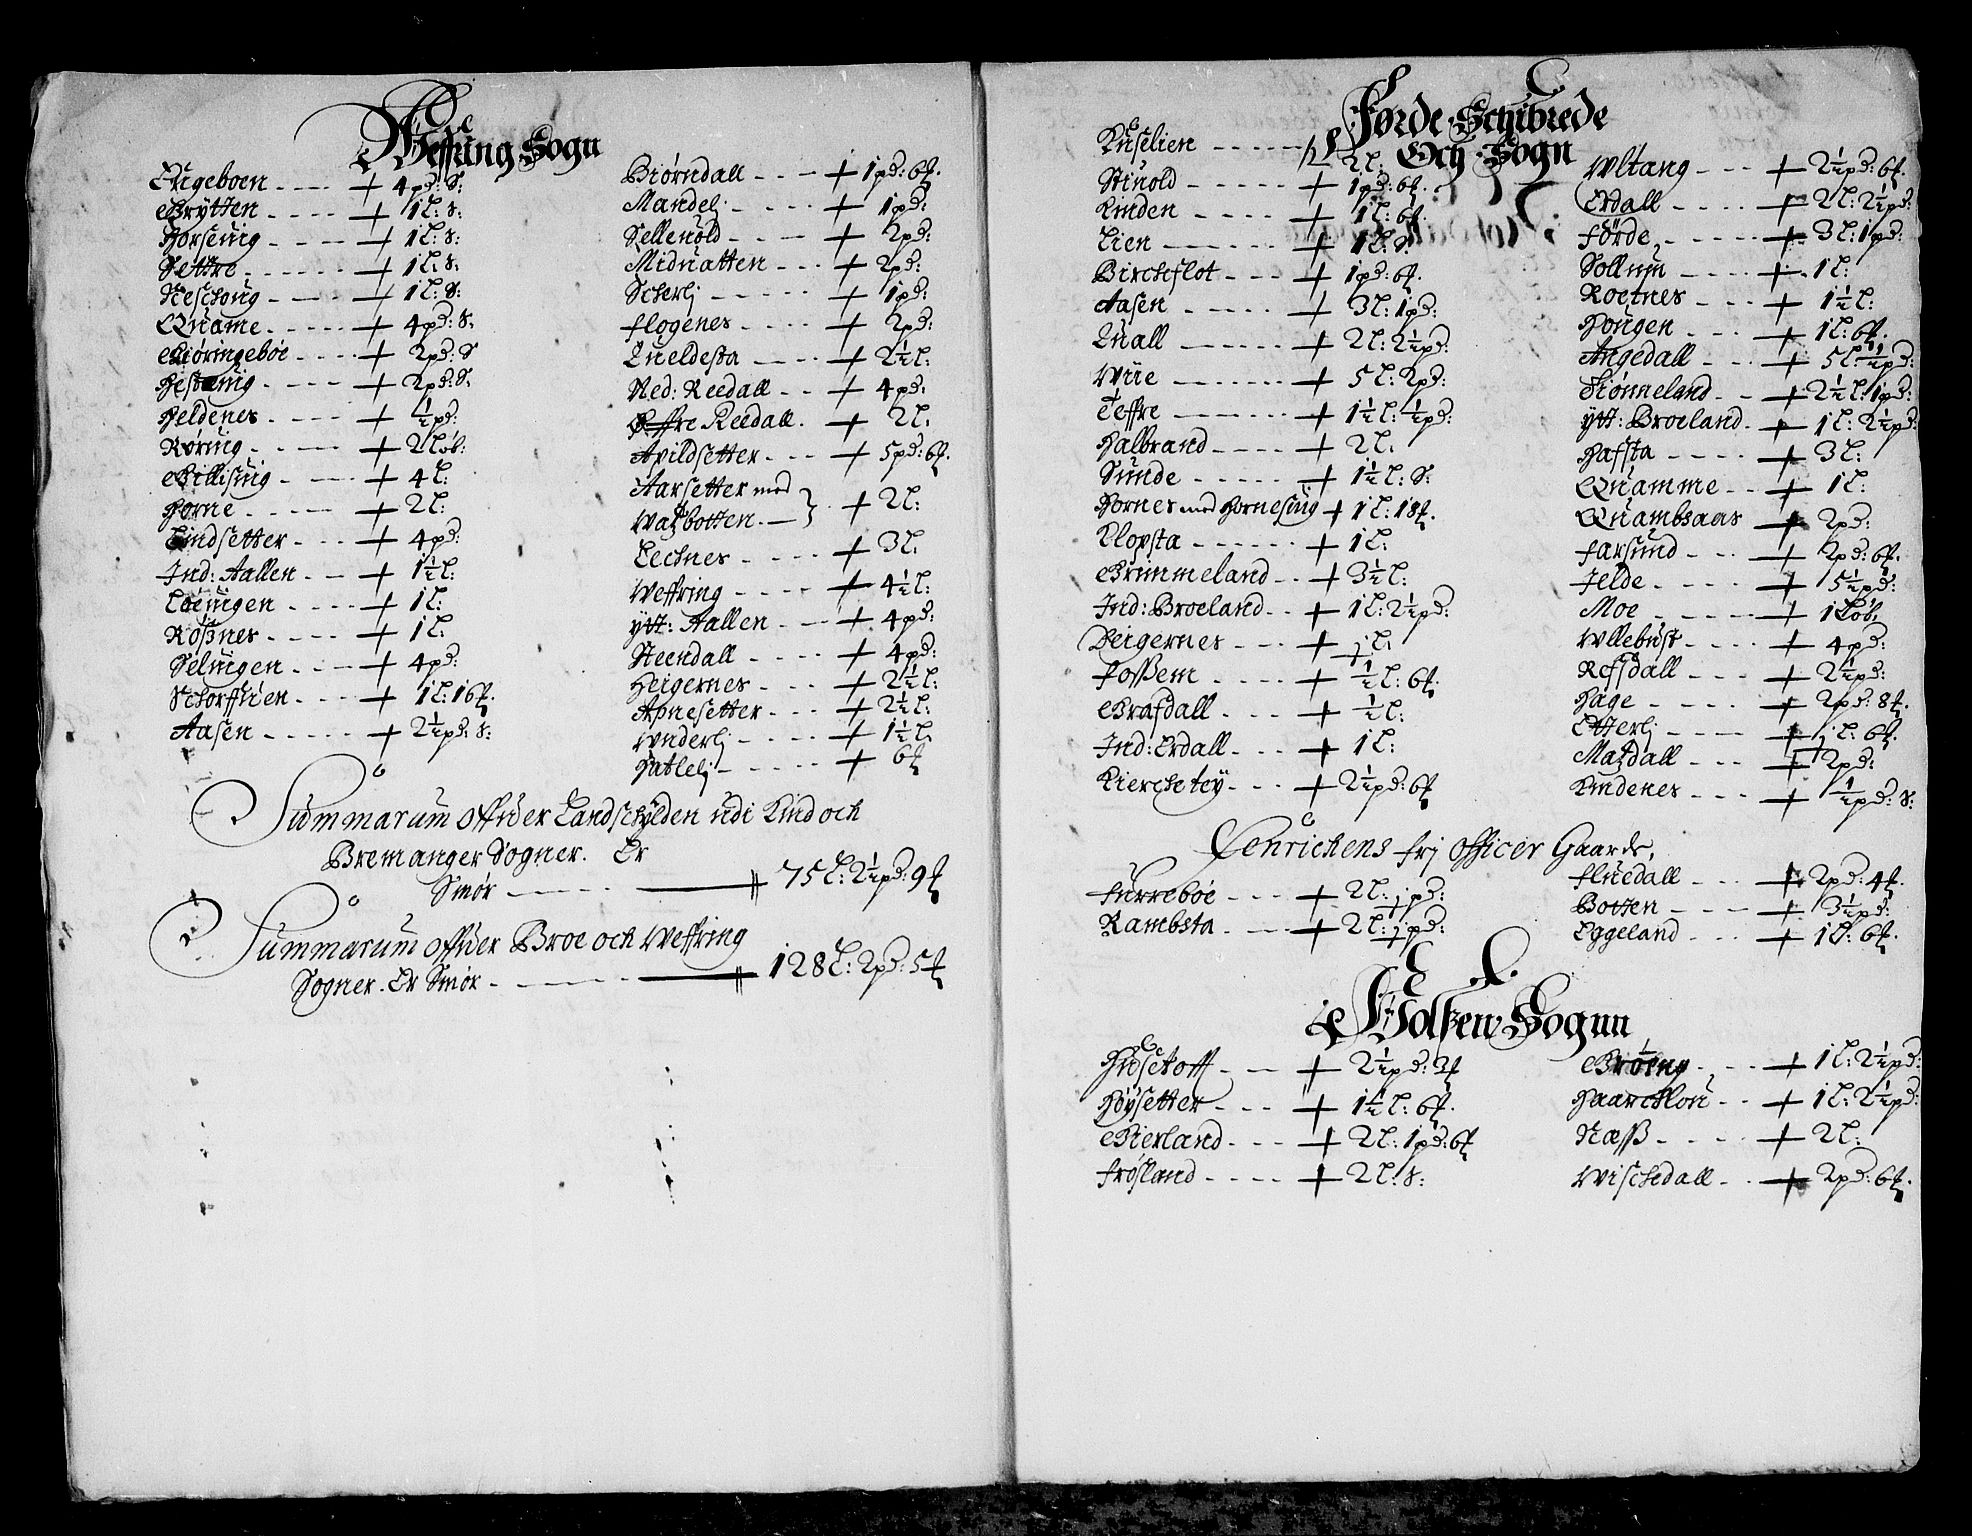 Weffring Sogn
Engeboen - - - + 4 pd: S:
Grytten - - - - + 1 l: s:
Horseng - - - + 1 l: s:
Settre - - - - - + 1 l: s:
Neschong - - - + 1 l: s:
Quame - - - - + 4 pd: s:
Kiøringeboe - - - + 2 pd: S
Hestenig - - - - + 2 pd: S.
Heldenes - - - - + ½ pd:
Røring - - - - + 2 løb:
Billising - - - + 4 l:
Horne - - - - + 2 l:
Lindsetter - - - + 4 pd:
Ind: Aallen - - + 1½ l:
Løeingen - - - - + 1 l:
Roßnes - - - - + 1 l:
Selningen - - - + 4 pd:
Schorffuen - - - + 1 l: 16 ℔
Aasen - - - - - + 2½ pd: s:
Biørndall - - - + 1 pd: 6 ℔
Mandelj - - - - + 1 pd:
Sellenold - - - + 2 pd:
Midnatten - - - + 2 pd:
Scherlj - - - - - + 1 pd:
Flogenes - - - - + 2 pd:
Queldesta - - - - + 2½ l:
Ned: Reedall - - + 4 pd:
Øffre Reedall. + 2 l.
Avildsetter - - - + 5 pd: 6 ℔
Aarsetter med
Watzbotten. — } + 2 l:
Lechnes - - - - + 3 l.
Weffring - - - - + 4½ l:
ytt: Aallen - - - + 4 pd:
Steendall - - - - + 4 pd:
Heigernes - - - + 2½ l:
Apnesetter - - - + 2½ l:
Wnderlj - - - - - + 1½ l:
Hatlelj - - - - - + 6 ℔
Summarum offuer Landschylden udi Kind och
Bremanger Sogner. Er
Smør - - - 75 l: 2½ pd: 9 ℔
Summarum offuer Broe och Weffring
Sogner. Er Smør - - - 128 l: 2 pd: 5 ℔
Førde Schibrede
Och Sogn
Kuselien - - - - - 2 l:
Stinold - - - - - + 1 pd: 6 ℔.
Kinden - - - - + 1 l: 6 ℔.
Lien - - - - + 1 l: S.
Bircheflot - - - + 1 pd: 6 ℔.
Aasen - - - - - + 3 l: 1 pd:
Quall - - - - - + 2 l: 2½ pd:
Wiie - - - - - + 5 l: 2 pd:
Teffre - - - - + 1½ l: ½ pd:
Halbrand - - - - + 2 l.
Sunde - - - - - + 1½ l: S:
Hornes med Hornesing + 1 l: 18 ℔.
Klopsta - - - - - - + 1 l:
Brummeland - - + 3½ l:
Ind: Broeland - - + 1 l: 2½ pd:
Heigernes - - - + j l:
Foßem - - - - + ½ l: 6 ℔
Grafdall - - - - + ½ l:
Ind: Erdall - - - + 1 l:
Kierchetey - - - + 2½ pd: 6 ℔
Wltang - - - + 2½ pd: 6 ℔.
Erdall - - - - + 2 l: 2½ pd:
Førde - - - - + 3 l: 1 pd:
Sollum - - - - + 1 l:
Roetnes - - - + 1½ l:
Hougen - - - - + 1 l: 6 ℔.
Angedall - - - + 5 l: ½ pd:
Tiønneland - - + 2½ l: 1 pd:
ytt: Broeland - + 1 l: 2½ pd:
Hafsta - - - - + 3 l:
Quamme - - + 1 l:
Quambsaas + 2 pd:
Farsund - - - + 2 pd: 6 ℔.
Jelde - - - - - + 5½ pd:
Moe - - - - + 1 løb.
Wllebust - - - + 4 pd:
Refsdall - - - + 2½ pd:
Hage - - - - + 2 pd: 8 ℔.
Etterlj - - - - + j l: 6 ℔
Matzdall - - - + 2 pd:
Kindenes - - - + ½ pd: s:
Henrichens frj officer Gaarde.
Furreboe - - - + 2 l: j pd:
Rambsta - - - + 2 l: j pd:
Fluedall - - - + 2 pd: 4 ℔.
Botten - - - - + 3½ pd:
Eggeland - - - + 1 l: 6 ℔
Holßen Sognn
Husetoft - - - + 2½ pd: 3 ℔
Høysetter - - - + 1½ l: 6 ℔.
Bierland - - - + 2 l: 1 pd: 6 ℔
Frøsland - - - - + 2 l: s:
Brøeng - - - + 1 l: 2½ pd:
Haarcklou - - + 1 l: 2½ pd:
Næss - - - - + 2 l:
Wischedall - - + 2 pd: 6 ℔.